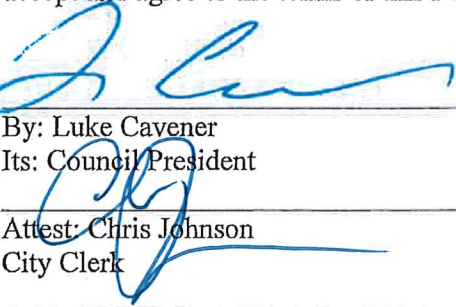 By: Luke Cavener
Its: Council President
Attest: Chris Johnson
City Clerk